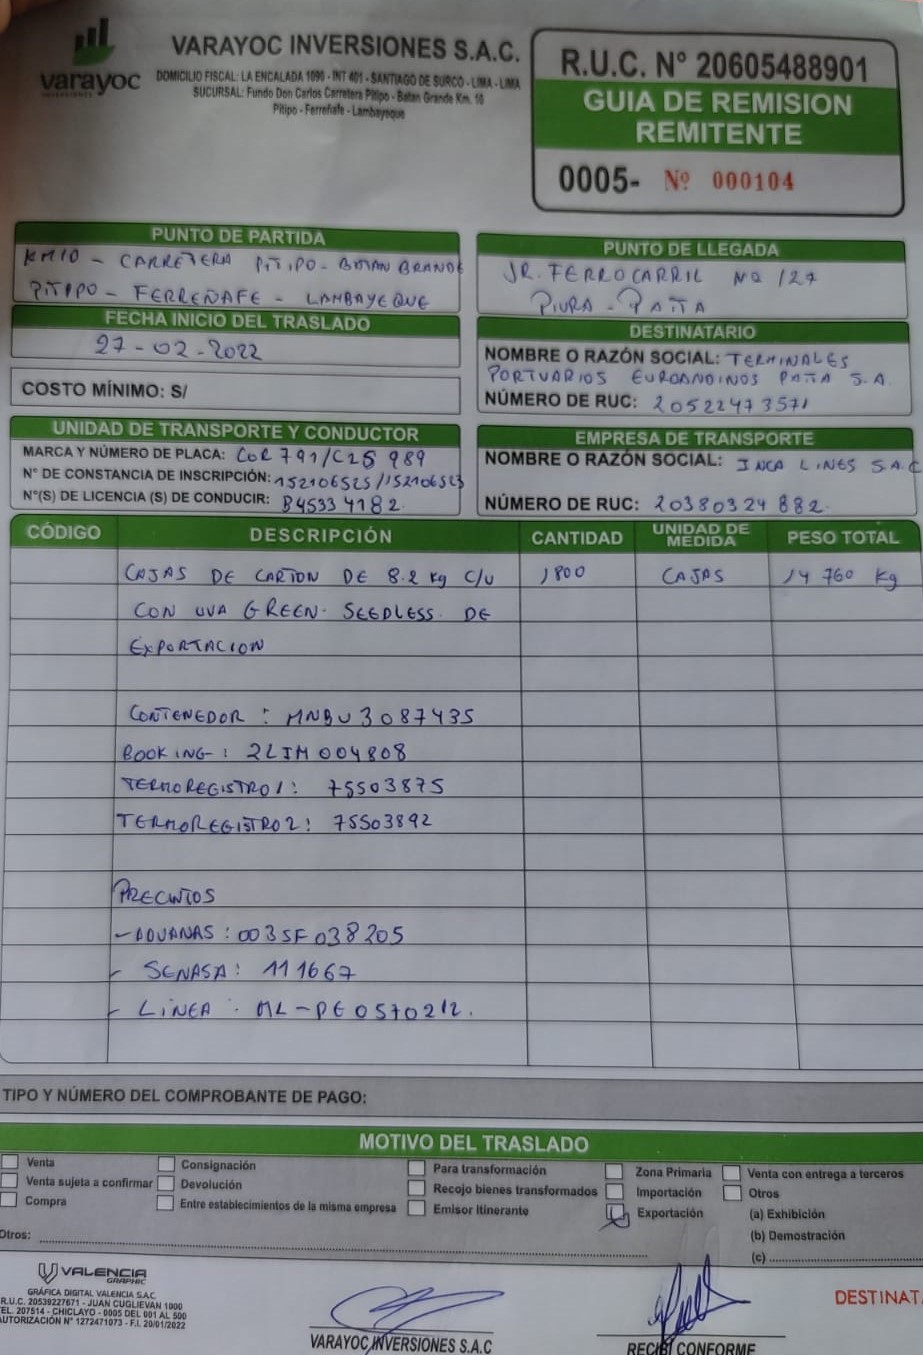 varayoc
INVERSIONES
VARAYOC INVERSIONES S.A.C.
DOMICILIO FISCAL: LA ENCALADA 1090 - INT 401 - SANTIAGO DE SURCO - LIMA - LIMA
SUCURSAL: Fundo Don Carlos Carretera Pitipo - Batan Grande Km. 10
Pitipo - Ferreñafe - Lambayeque
R.U.C. N° 20605488901
GUIA DE REMISION
REMITENTE
0005- Nº 000104
PUNTO DE PARTIDA
KM10 - CARRETERA PITIPO - BATAN GRANDE
PITIPO - FERREÑAFE - LAMBAYEQUE
PUNTO DE LLEGADA
JR. FERROCARRIL NO 127
PIURA - PAITA
FECHA INICIO DEL TRASLADO
27-02-2022
COSTO MÍNIMO: S/
DESTINATARIO
NOMBRE O RAZÓN SOCIAL: TERMINALES
PORTUARIOS EUROANDINOS PAITA S.A.
NÚMERO DE RUC: 20522473571
UNIDAD DE TRANSPORTE Y CONDUCTOR
MARCA Y NÚMERO DE PLACA: COR 791/C25 989
N° DE CONSTANCIA DE INSCRIPCIÓN: 152106525/152106523
N°(S) DE LICENCIA (S) DE CONDUCIR: B45334182
EMPRESA DE TRANSPORTE
NOMBRE O RAZÓN SOCIAL: INCA LINES S.A.C
NÚMERO DE RUC: 20380324882
CÓDIGO DESCRIPCIÓN CANTIDAD UNIDAD DE MEDIDA PESO TOTAL
CAJAS DE CARTON DE 8.2 kg C/U 1800 CAJAS 14 760 kg
CON UVA GREEN SEEDLESS DE
EXPORTACION
CONTENEDOR : MNBU3087435
BOOKING : 2LIM004808
TERMOREGISTRO1: 75503875
TERMOREGISTRO2: 75503892
PRECINTOS
- ADUANAS : 003SF038205
- SENASA : 111667
- LINEA : ML-PE0570212.
TIPO Y NÚMERO DEL COMPROBANTE DE PAGO:
MOTIVO DEL TRASLADO
Venta Consignación Para transformación Zona Primaria Venta con entrega a terceros
Venta sujeta a confirmar Devolución Recojo bienes transformados Importación Otros
Compra Entre establecimientos de la misma empresa Emisor Itinerante Exportación (a) Exhibición
(b) Demostración
Otros: (c)
VALENCIA
GRAPHIC
GRÁFICA DIGITAL VALENCIA S.A.C.
R.U.C. 20539227671 - JUAN CUGLIEVAN 1000
TEL. 207514 - CHICLAYO - 0005 DEL 001 AL 500
AUTORIZACIÓN N° 1272471073 - F.I. 20/01/2022
VARAYOC INVERSIONES S.A.C
RECIBI CONFORME
DESTINAT